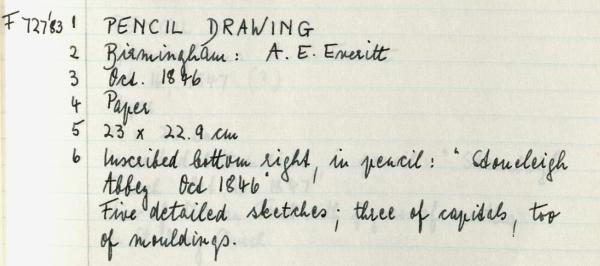 F 727'83 1 PENCIL DRAWING
2 Birmingham: A. E. Everitt
3 Oct. 1846
4 Paper
5 23 x 22.9 cm
6 Inscribed bottom right, in pencil: "Stoneleigh
Abbey Oct 1846"
Five detailed sketches; three of capitals, too
of mouldings.